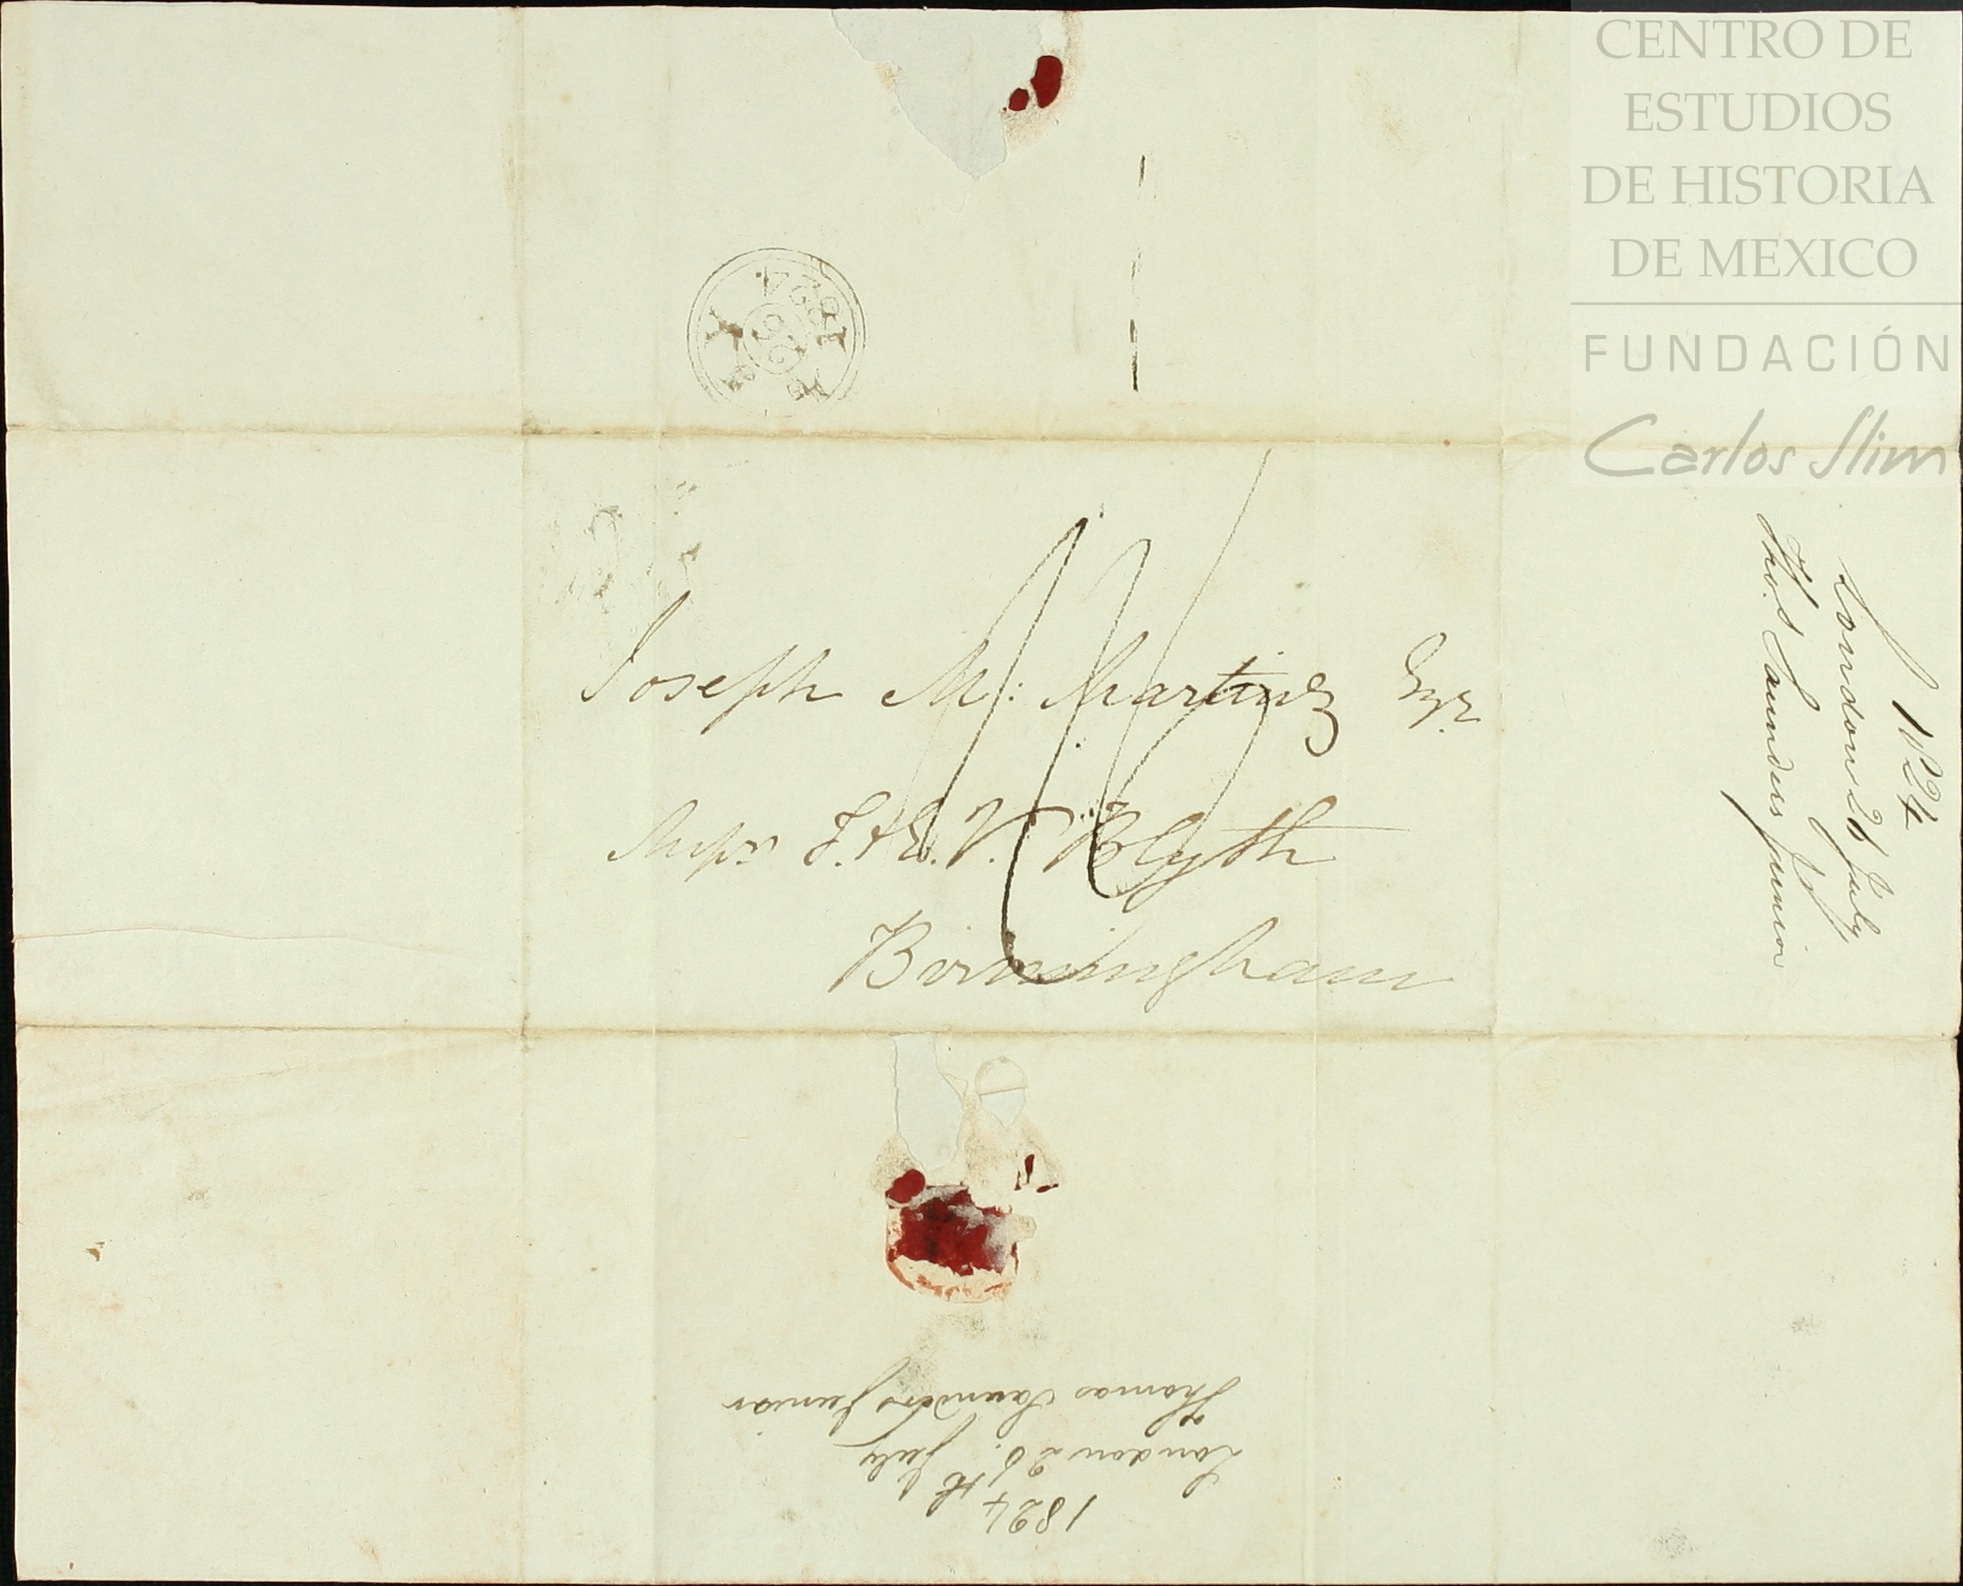 CENTRO DE
ESTUDIOS
DE HISTORIA
DE MEXICO
FUNDACIÓN
Carlos Slim
1824
Joseph M: Martinez Esqr.
Messrs F. & E. V. Blyth
Birmingham
1824
London 26 July
Tho.s Saunders junior
1824
London 26th July
Thomas Saunders Junior